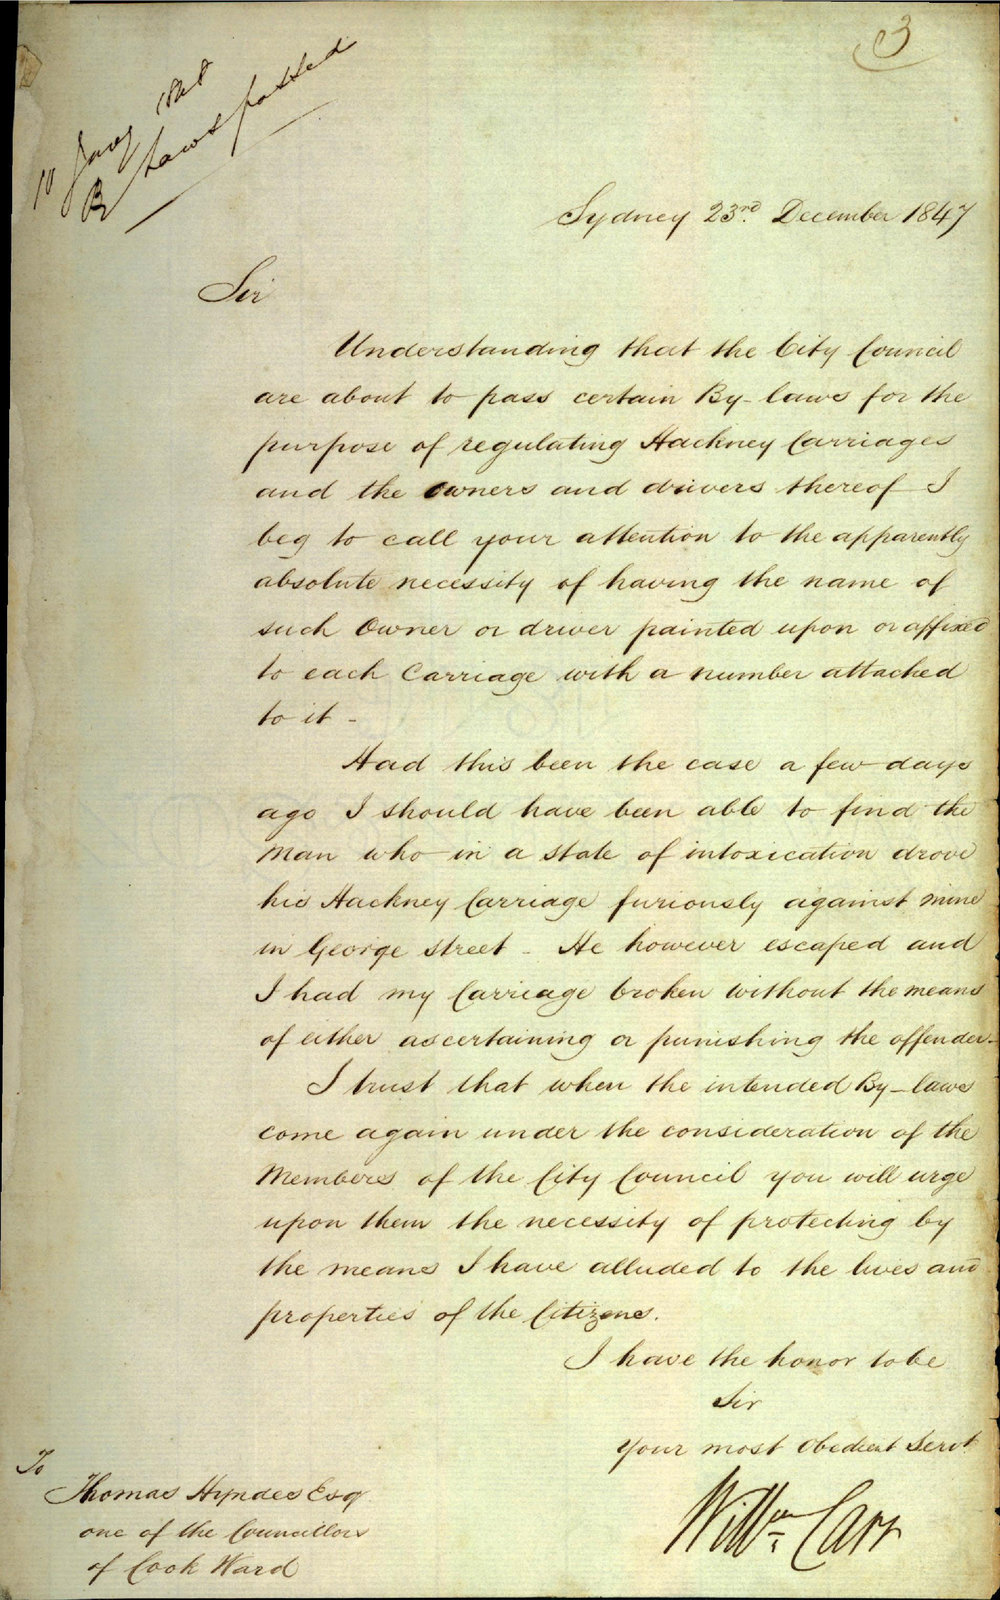 3
10 Jany 1848
By Laws passed
Sydney 23rd. December 1847
Sir
Understanding that the City Council
are about to pass certain By-laws for the
purpose of regulating Hackney Carriages
and the Owners and drivers thereof I
beg to call your attention to the apparently
absolute necessity of having the name of
such Owner or driver painted upon or affixed
to each Carriage with a number attached
to it -
Had this been the case a few days
ago I should have been able to find the
Man who in a state of intoxication drove
his Hackney Carriage furiously against mine
in George Street - He however escaped and
I had my Carriage broken without the means
of either ascertaining or punishing the offender -
I trust that when the intended By-laws
come again under the consideration of the
Members of the City Council you will urge
upon them the necessity of protecting by
the means I have alluded to the lives and
properties of the Citizens.
I have the honor to be
Sir
Your most Obedient Servt.
Willm Carr
To
Thomas Hyndes Esq
one of the Councillors
of Cook Ward